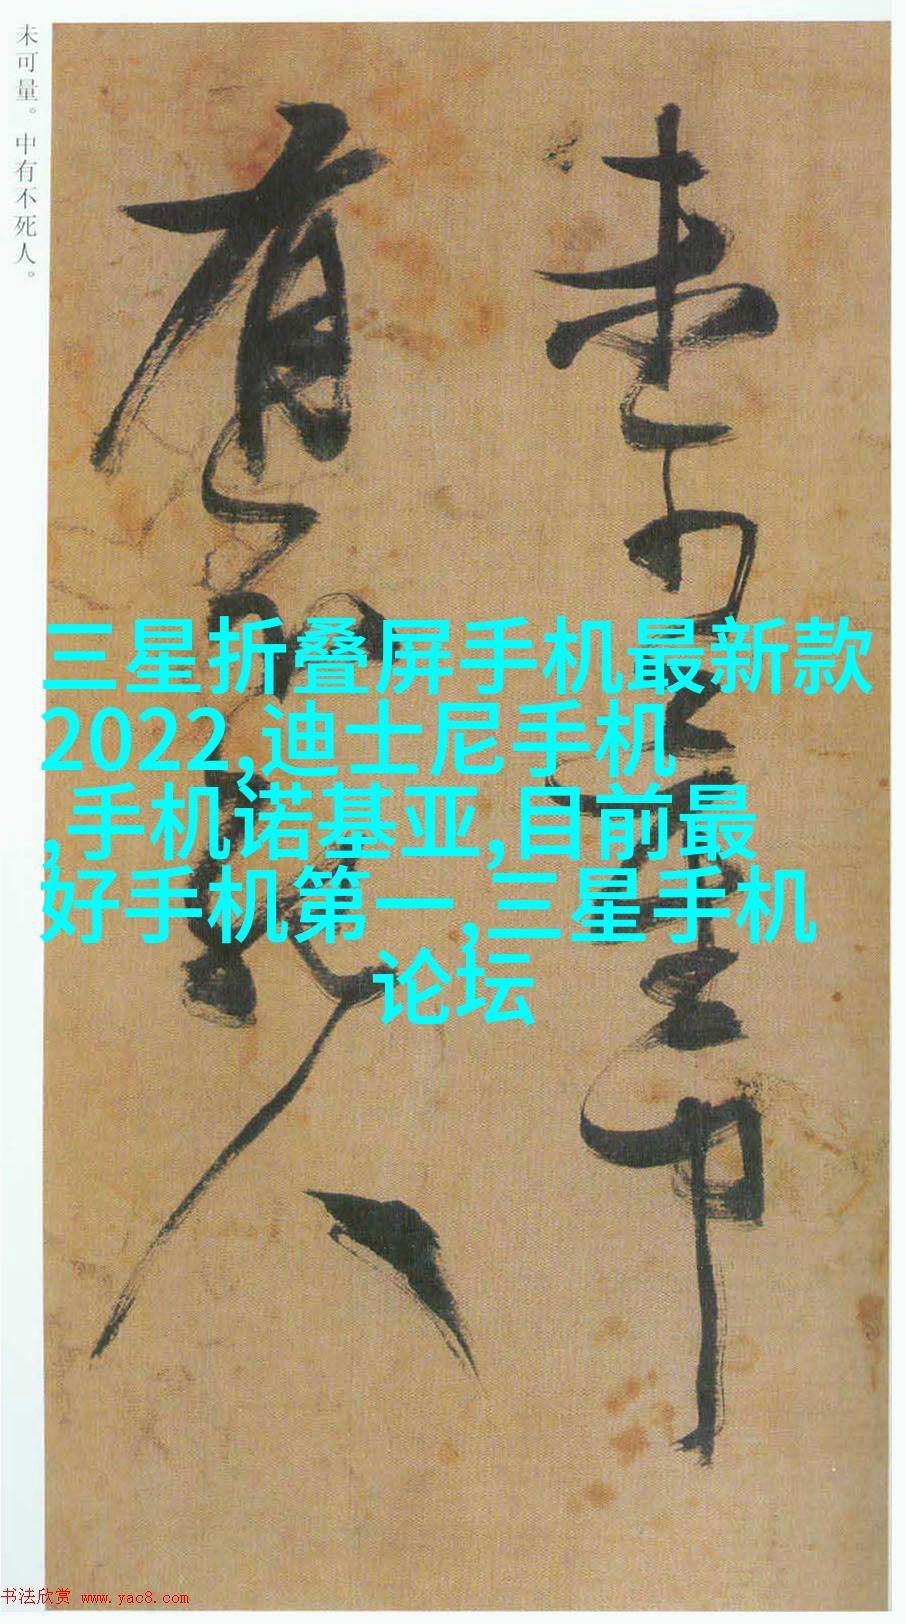 未可量。中有不死人。
未可量中
有不死人
三星折叠屏手机最新款
2022,迪士尼手机
,手机诺基亚,目前最
好手机第一,三星手机
论坛
书法欣赏 www.yac8.com